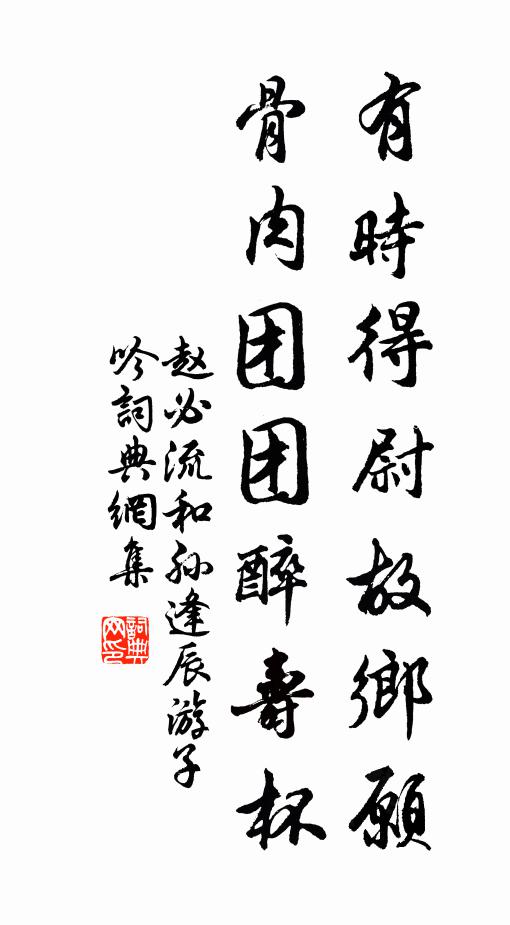 有時得尉故鄉願
骨肉团团醉壽杯
赵必流和孙逢辰游子
吟詞典網集
詞典网印